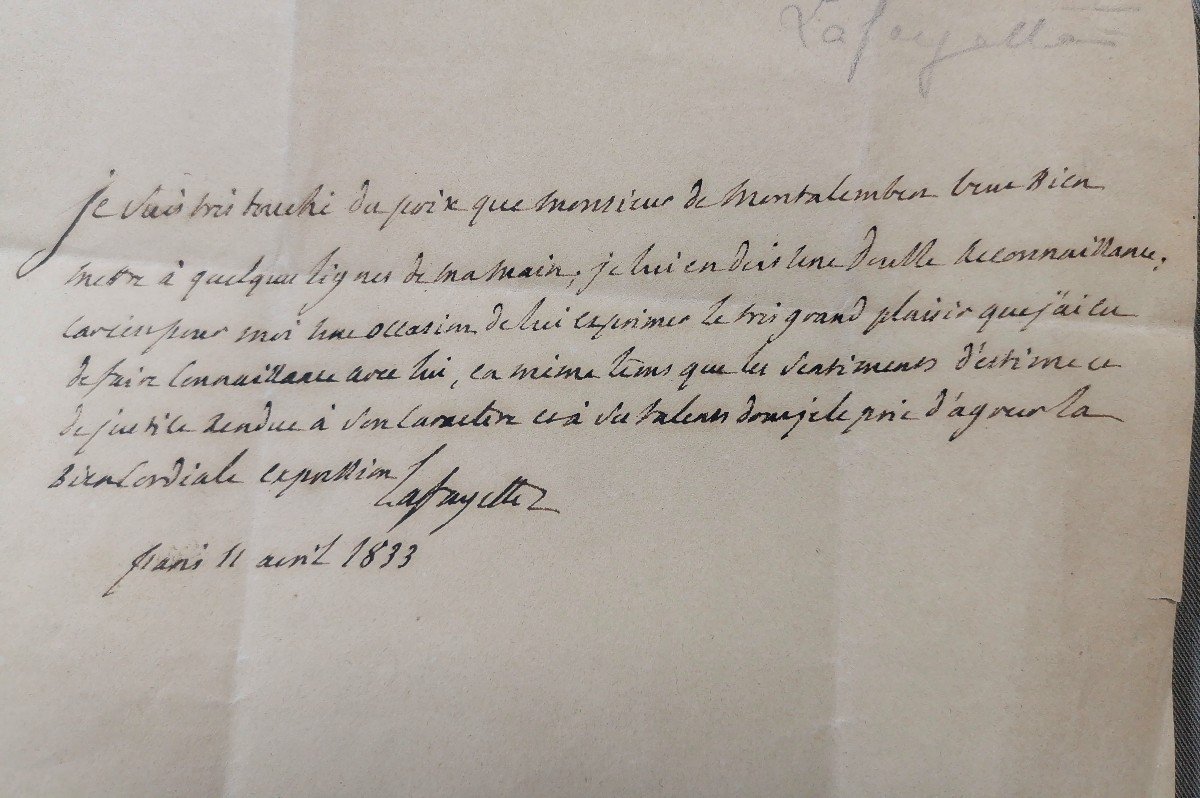 Lafayette
je suis très touché du prix que monsieur de Montalembert veut bien
mettre à quelques lignes de ma main; je lui en dois une double reconnaissance,
car c'est pour moi une occasion de lui exprimer le très grand plaisir que j'ai eu
de faire connaissance avec lui, en même tems que les sentiments d'estime et
de justice rendue à son caractère et à ses talents dont je le prie d'agréer la
bien cordiale expression
Lafayette
Paris 11 avril 1833